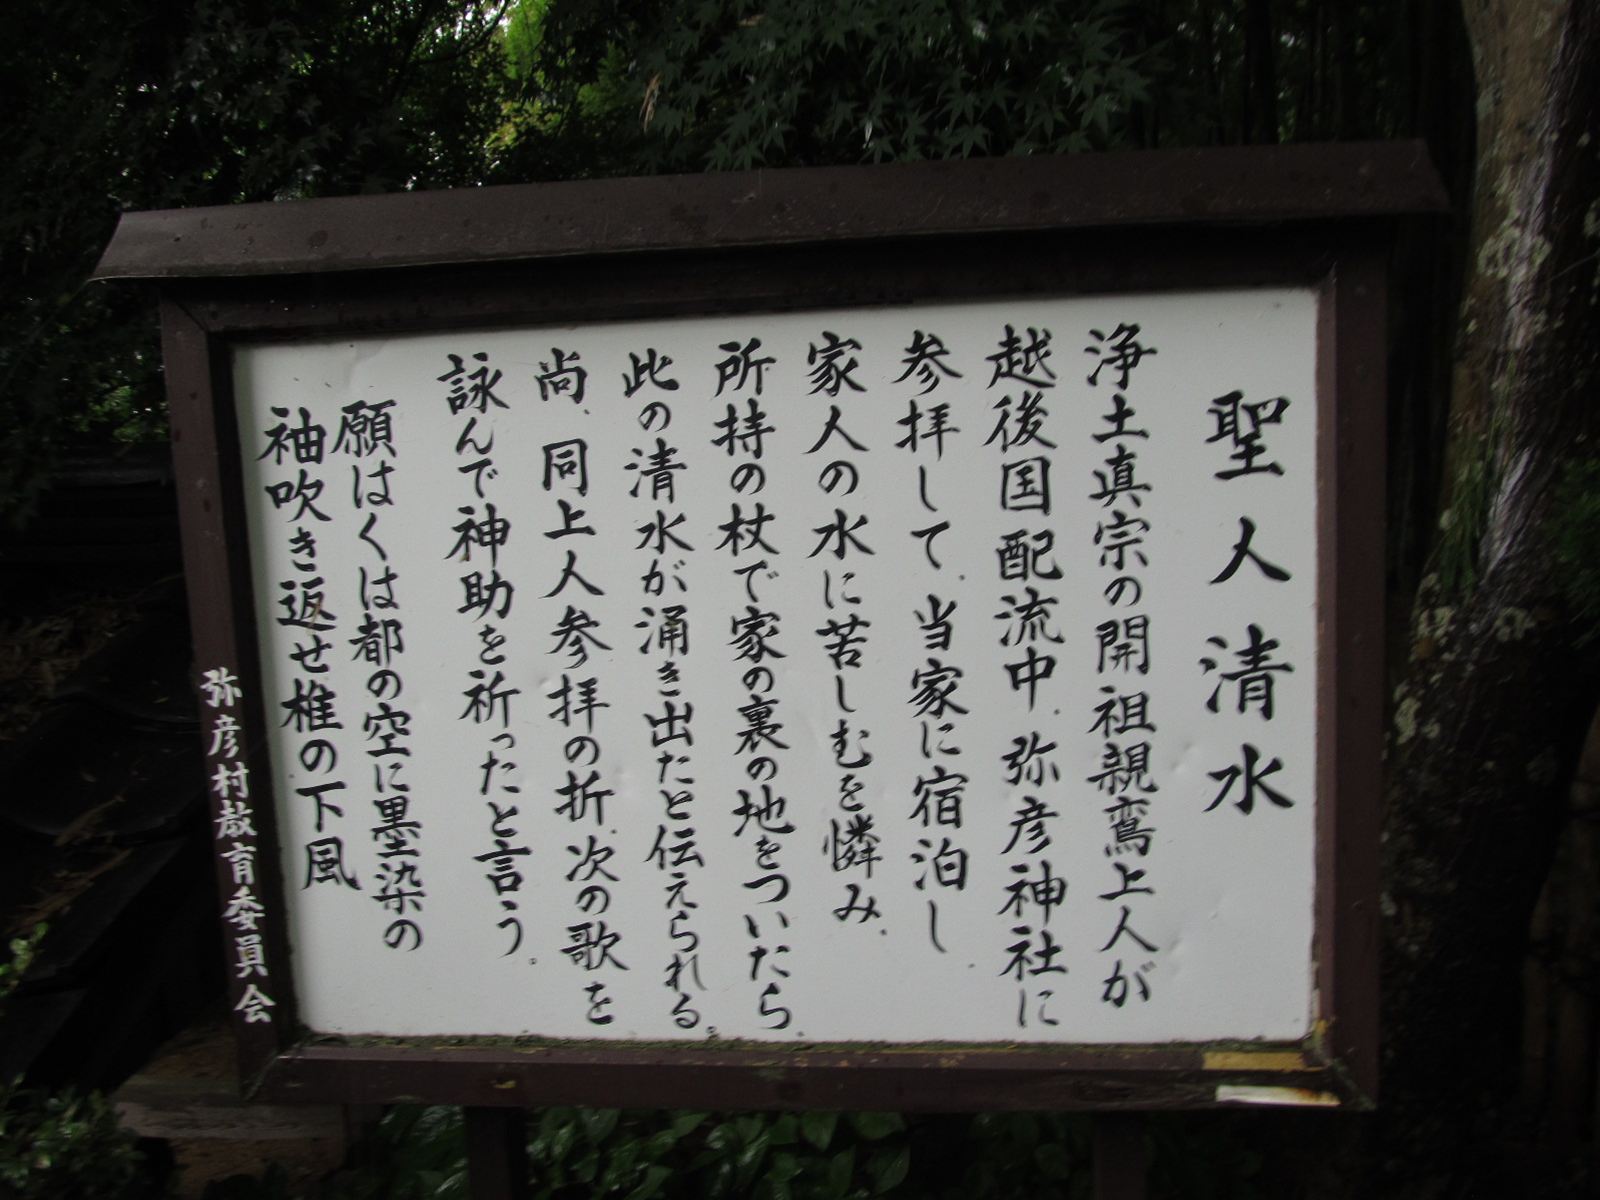 聖人清水
浄土真宗の開祖親鸞上人が
越後国配流中、弥彦神社に
参拝して、当家に宿泊し
家人の水に苦しむを憐み、
所持の杖で家の裏の地をついたら、
此の清水が涌き出たと伝えられる。
尚、同上人参拝の折、次の歌を
詠んで神助を祈ったと言う。
願はくは都の空に墨染の
袖吹き返せ椎の下風
弥彦村教育委員会